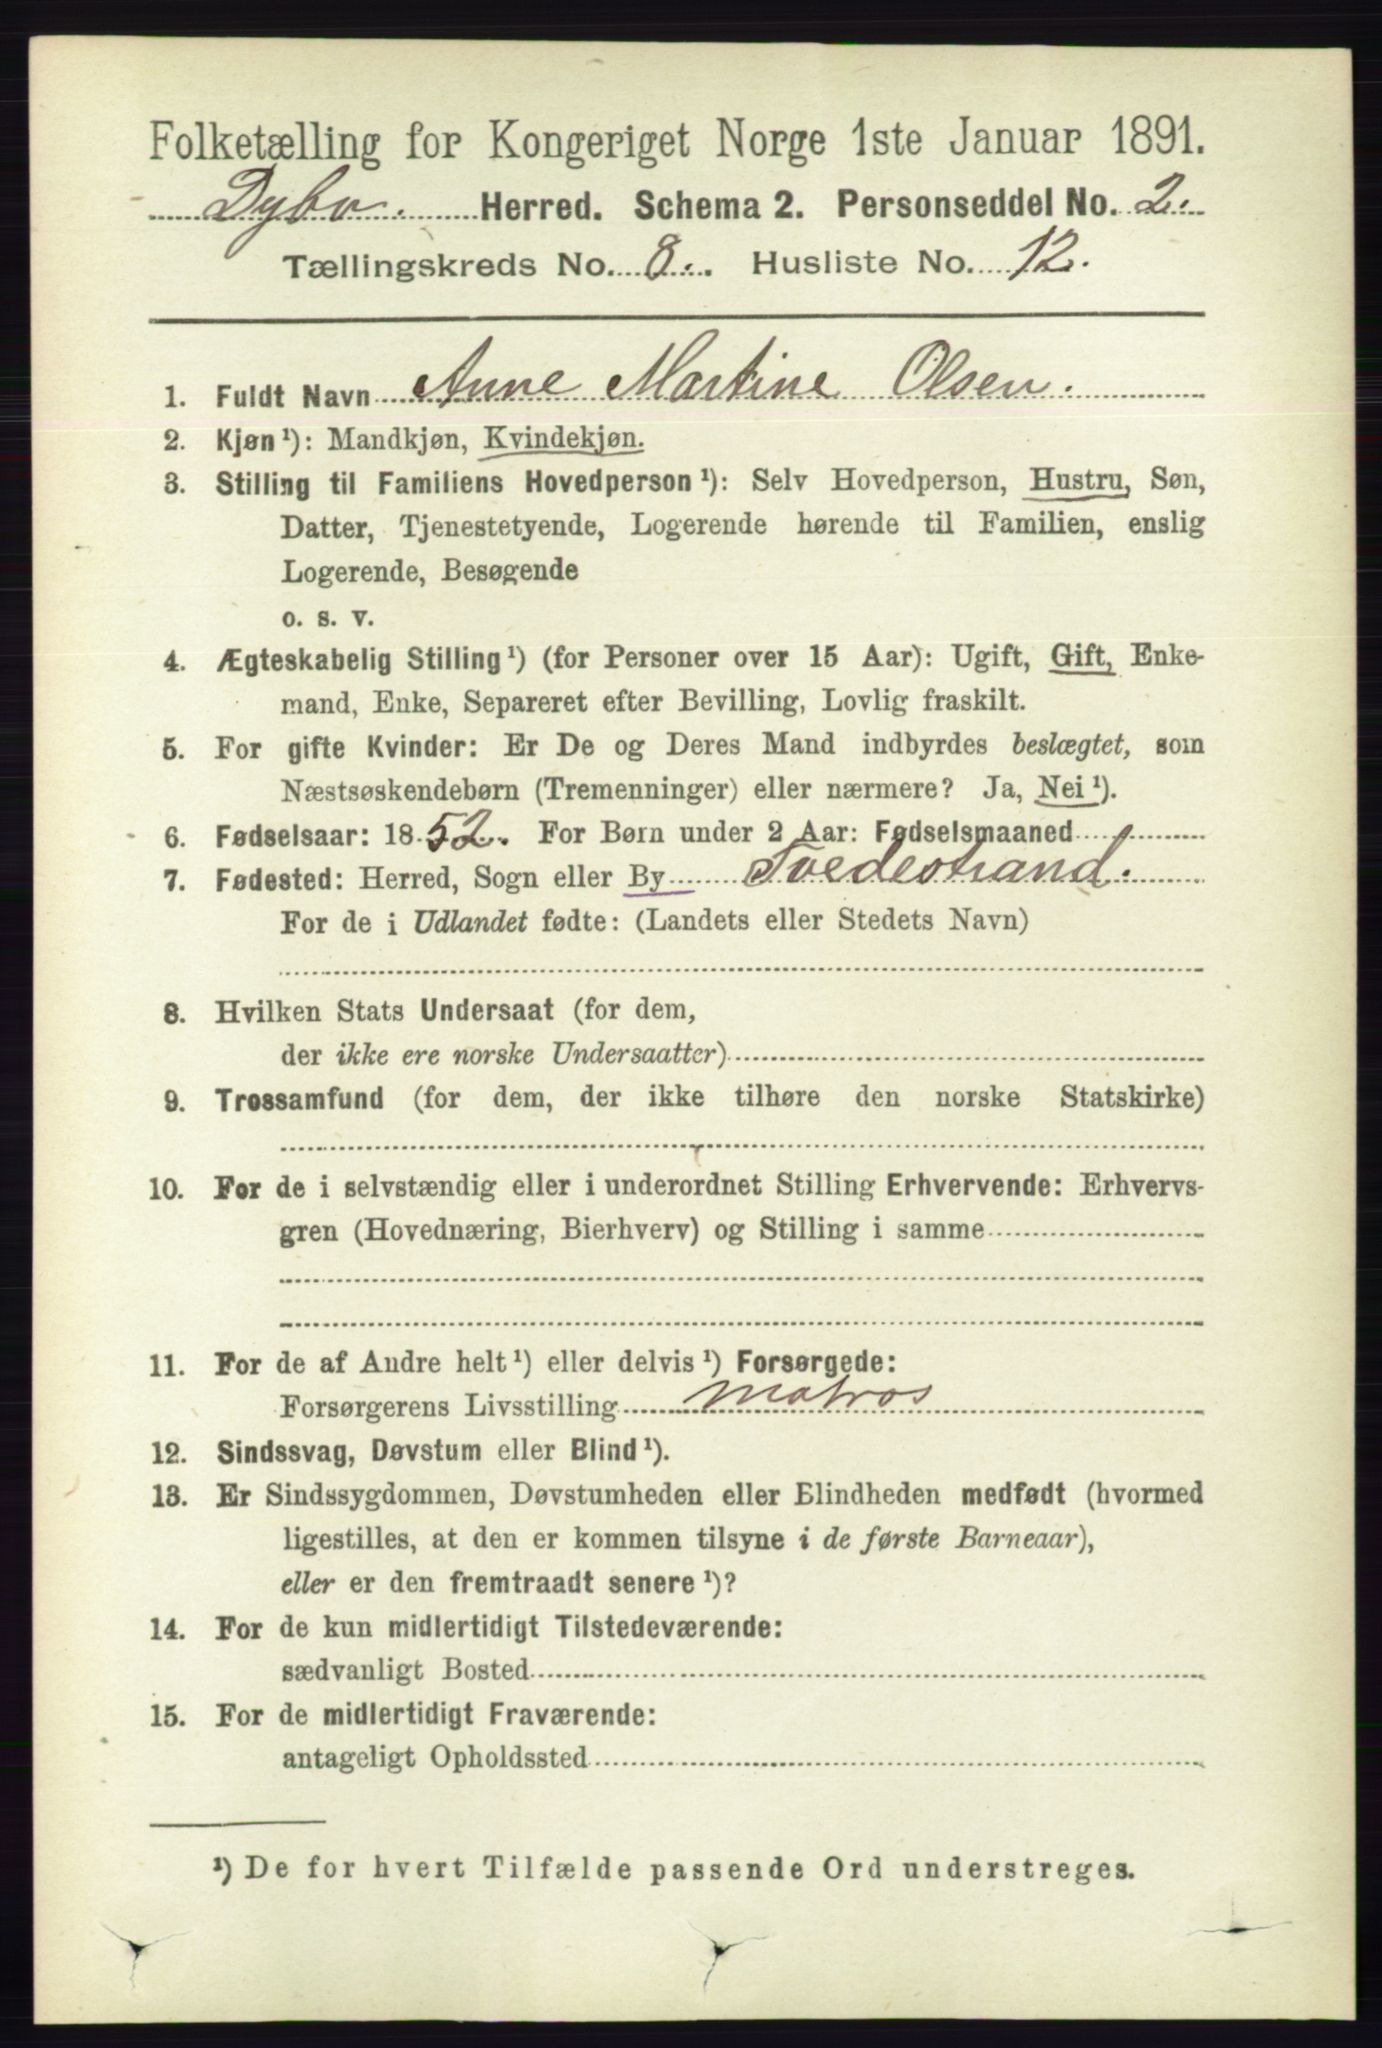 Folketælling for Kongeriget Norge 1ste Januar 1891.
Dybv. Herred. Schema 2. Personseddel No. 2.
Tællingskreds No. 8. Husliste No. 12.
1. Fuldt Navn Anne Martine Olsen.
2. Kjøn¹): Mandkjøn, Kvindekjøn.
3. Stilling til Familiens Hovedperson¹): Selv Hovedperson, Hustru, Søn,
Datter, Tjenestetyende, Logerende hørende til Familien, enslig
Logerende, Besøgende
o. s. v.
4. Ægteskabelig Stilling¹) (for Personer over 15 Aar): Ugift, Gift, Enke-
mand, Enke, Separeret efter Bevilling, Lovlig fraskilt.
5. For gifte Kvinder: Er De og Deres Mand indbyrdes beslægtet, som
Næstsøskendebørn (Tremenninger) eller nærmere? Ja, Nei¹).
6. Fødselsaar: 1852. For Børn under 2 Aar: Fødselsmaaned
7. Fødested: Herred, Sogn eller By Tvedestrand.
For de i Udlandet fødte: (Landets eller Stedets Navn)
8. Hvilken Stats Undersaat (for dem,
der ikke ere norske Undersaatter)
9. Trossamfund (for dem, der ikke tilhøre den norske Statskirke)
10. For de i selvstændig eller i underordnet Stilling Erhvervende: Erhvervs-
gren (Hovednæring, Bierhverv) og Stilling i samme
11. For de af Andre helt¹) eller delvis¹) Forsørgede:
Forsørgerens Livsstilling matros
12. Sindssvag, Døvstum eller Blind¹).
13. Er Sindssygdommen, Døvstumheden eller Blindheden medfødt (hvormed
ligestilles, at den er kommen tilsyne i de første Barneaar),
eller er den fremtraadt senere¹)?
14. For de kun midlertidigt Tilstedeværende:
sædvanligt Bosted
15. For de midlertidigt Fraværende:
antageligt Opholdssted
¹) De for hvert Tilfælde passende Ord understreges.